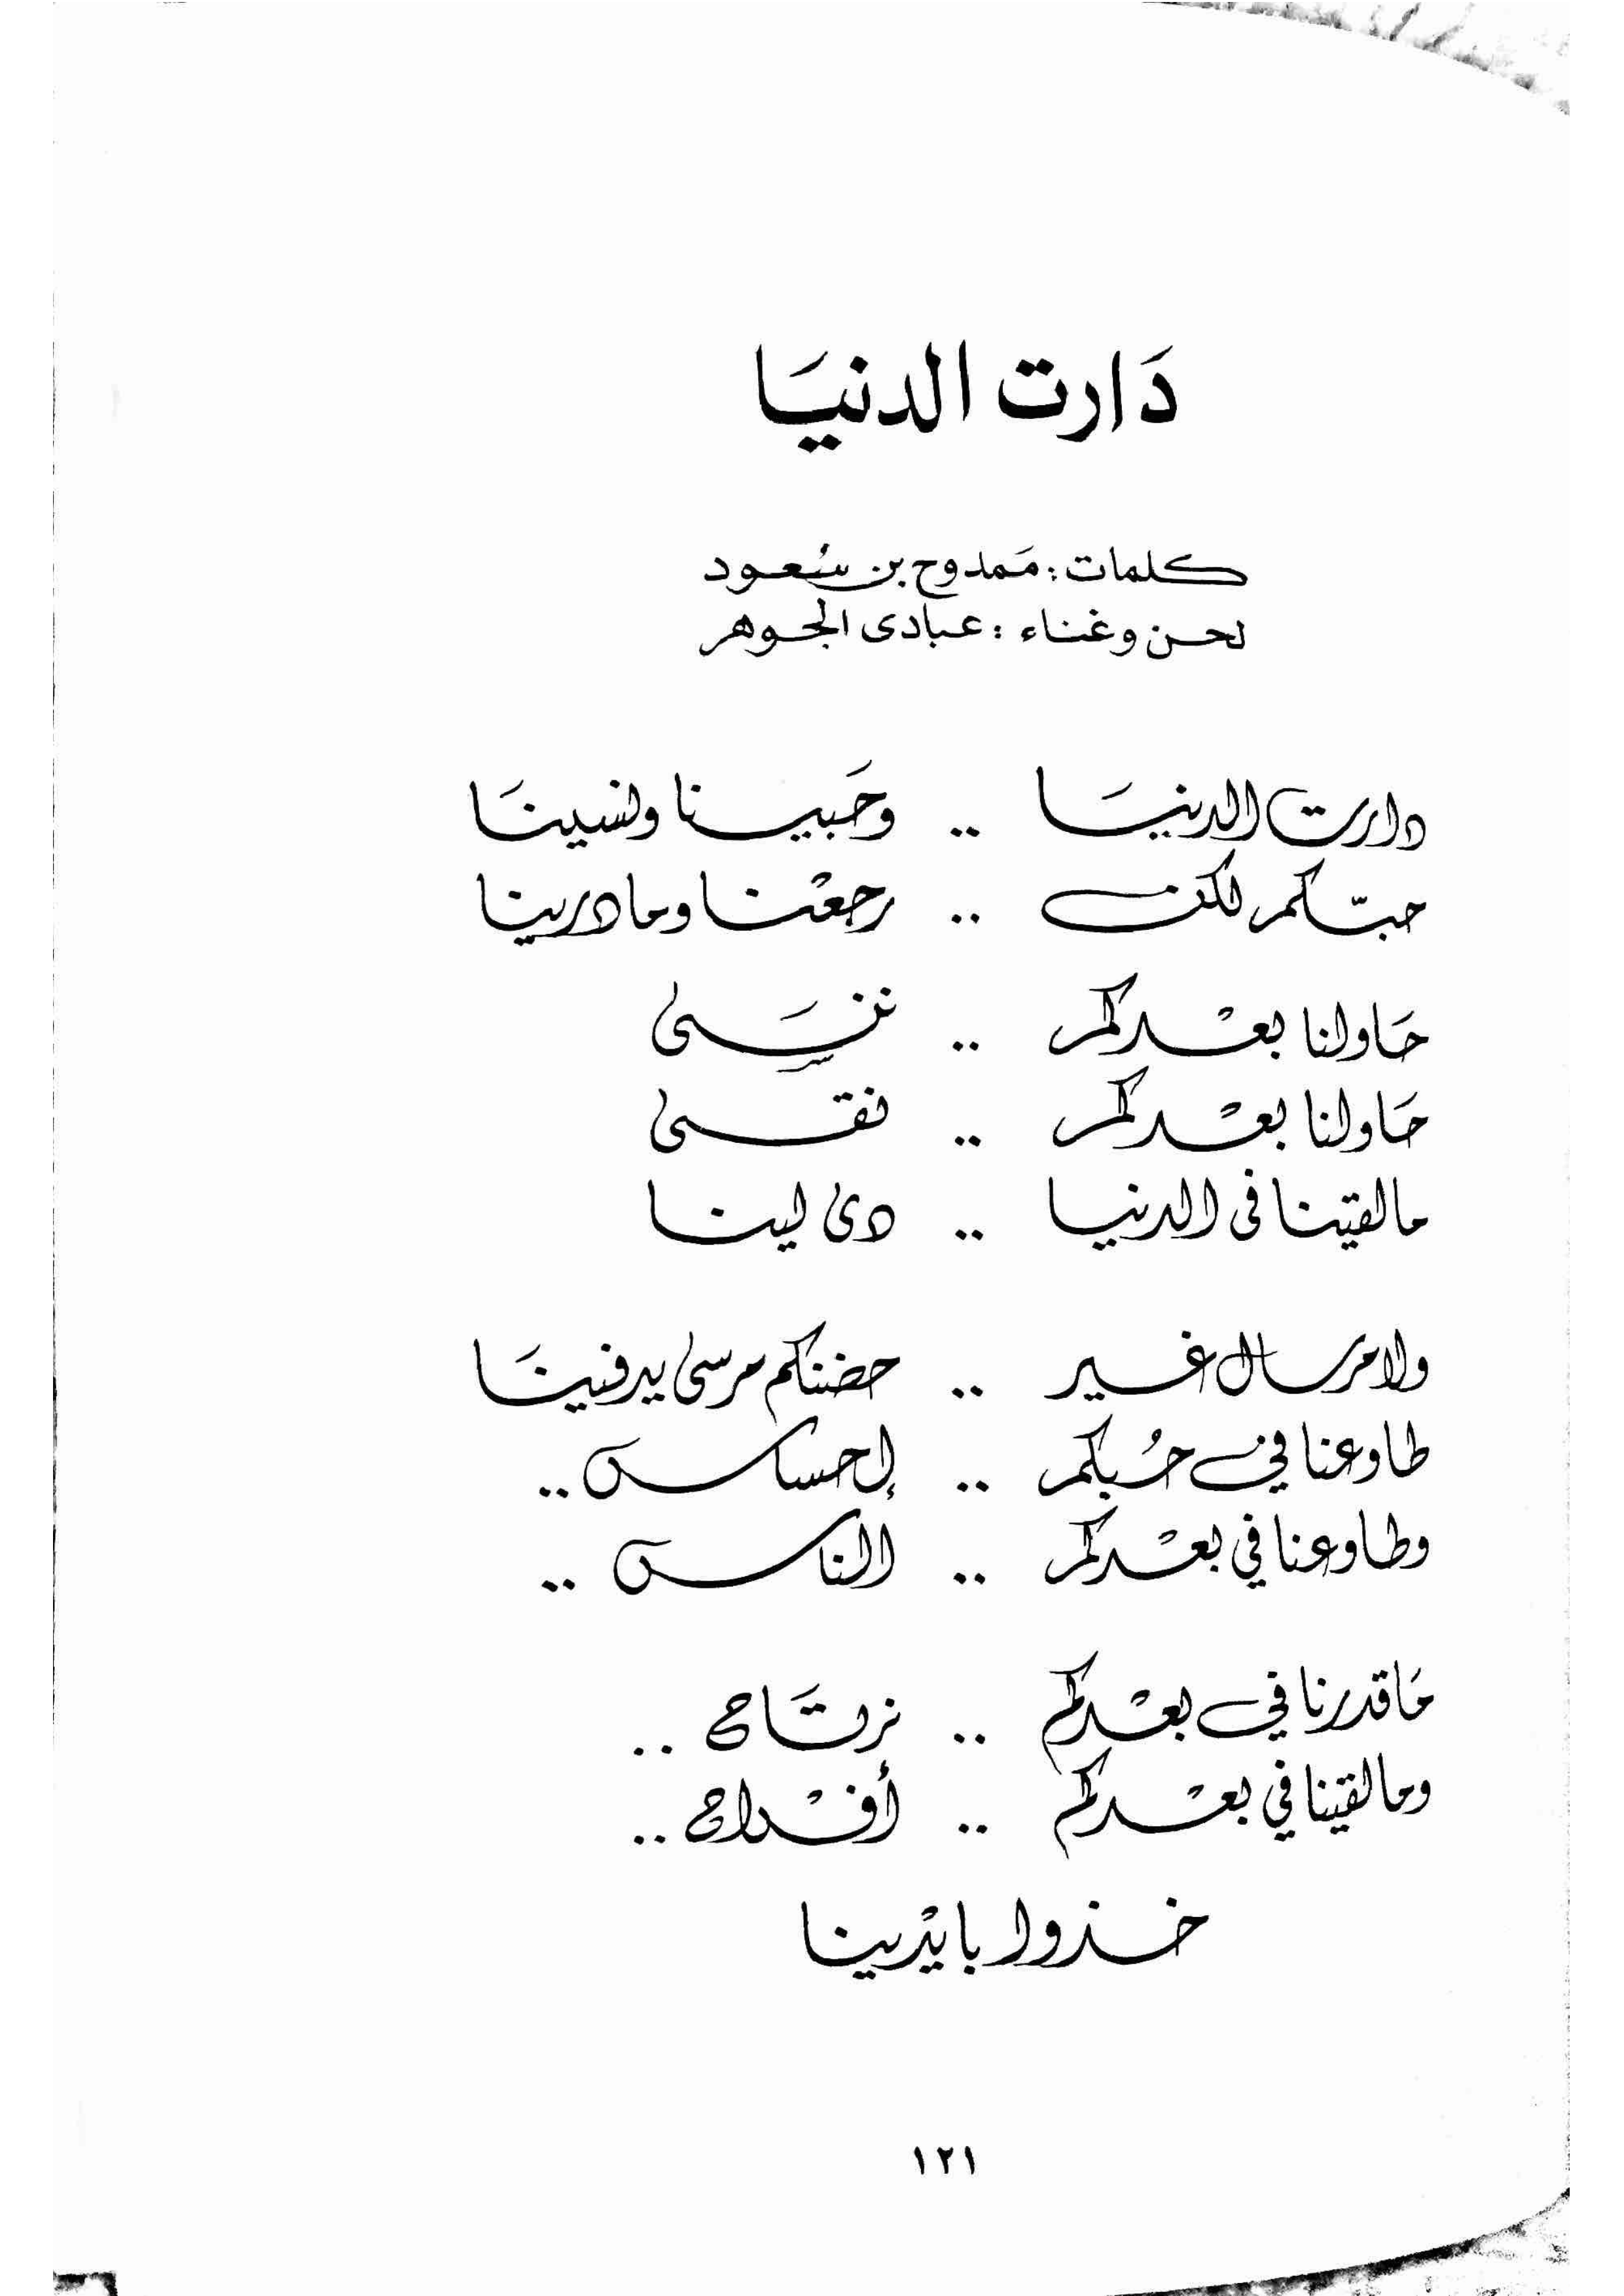 دَارت الدنيَا
كلمات : مَمدوح بن سُعود
لحن وغناء : عبادى الجوهر
دارت الدنيَا .. وحَبينا ونسينَا
حبّكم لكن .. رجعْنا وما درينا
حَاولنا بعْدكم .. ننسَى
حَاولنا بعْدكم .. نقسى
ما لقينا فى الدنيا .. دى لينا
ولا مرسال غير .. حضنكم مرسى يدفينَا
طاوعنا في حُبكم .. إحساس ..
وطاوعنا في بعْدكم .. الناس ..
مَا قدرنا في بعْدكم .. نرتَاح ..
وما لقينا في بعْدكم .. أفْراح ..
خذوا بايْدينا
١٢١